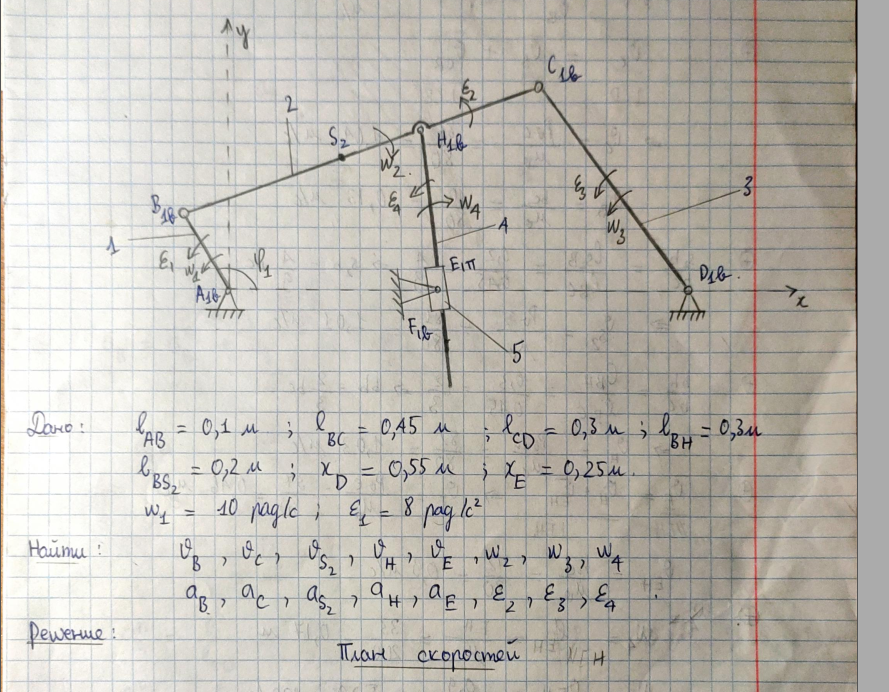 y
C₁в
2
ε₂
S₂
H₁в
ω₂
B₁в
ε₄
ω₄
ε₃
ω₃
3
1
4
ε₁
ω₁
φ₁
E₁п
A₁в
D₁в
x
F₁в
5
Дано: l_AB = 0,1 м ; l_BC = 0,45 м ; l_CD = 0,3 м ; l_BH = 0,3м
l_BS₂ = 0,2 м ; x_D = 0,55 м ; x_E = 0,25м.
ω₁ = 10 рад/с ; ε₁ = 8 рад/с²
Найти: υ_B , υ_C , υ_S₂ , υ_H , υ_E , ω₂ , ω₃ , ω₄
a_B , a_C , a_S₂ , a_H , a_E , ε₂ , ε₃ , ε₄ .
Решение:
План скоростей